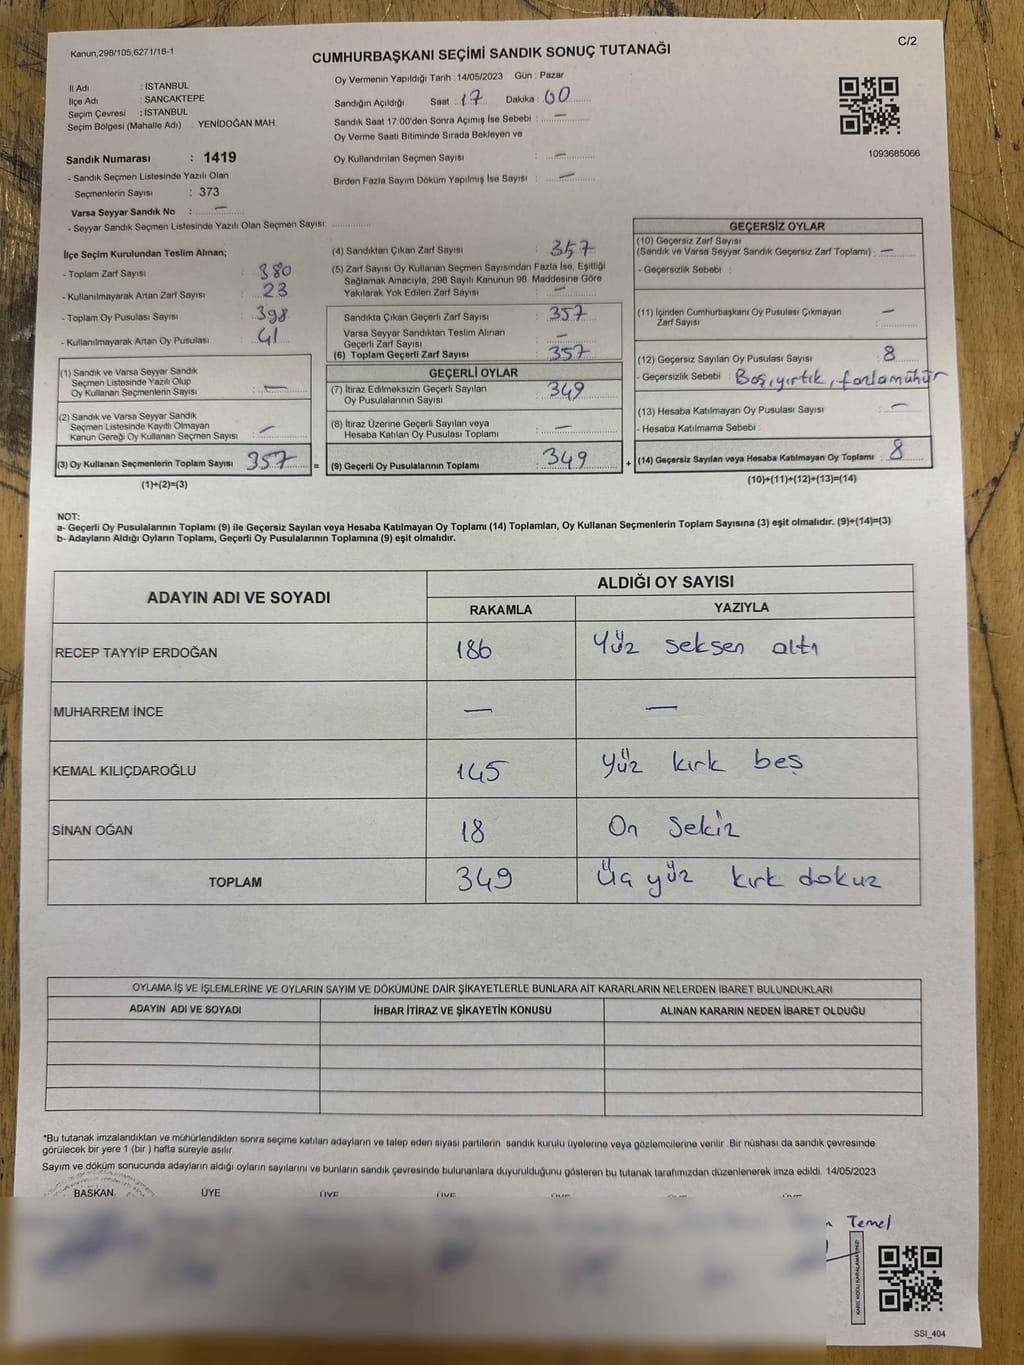 Kanun;298/105,6271/18-1
C/2
CUMHURBAŞKANI SEÇİMİ SANDIK SONUÇ TUTANAĞI
İl Adı : İSTANBUL
İlçe Adı : SANCAKTEPE
Seçim Çevresi : İSTANBUL
Seçim Bölgesi (Mahalle Adı) : YENİDOĞAN MAH.
Sandık Numarası : 1419
- Sandık Seçmen Listesinde Yazılı Olan
Seçmenlerin Sayısı : 373
Varsa Seyyar Sandık No : —
- Seyyar Sandık Seçmen Listesinde Yazılı Olan Seçmen Sayısı:
Oy Vermenin Yapıldığı Tarih :14/05/2023 Gün : Pazar
Sandığın Açıldığı Saat : 17 Dakika : 00
Sandık Saat 17:00'den Sonra Açımış İse Sebebi : —
Oy Verme Saati Bitiminde Sırada Bekleyen ve
Oy Kullandırılan Seçmen Sayısı : —
Birden Fazla Sayım Döküm Yapılmış İse Sayısı : —
1093685066
İlçe Seçim Kurulundan Teslim Alınan;
- Toplam Zarf Sayısı : 380
- Kullanılmayarak Artan Zarf Sayısı : 23
- Toplam Oy Pusulası Sayısı : 398
- Kullanılmayarak Artan Oy Pusulası : 41
(1) Sandık ve Varsa Seyyar Sandık
Seçmen Listesinde Yazılı Olup
Oy Kullanan Seçmenlerin Sayısı : —
(2) Sandık ve Varsa Seyyar Sandık
Seçmen Listesinde Kayıtlı Olmayan
Kanun Gereği Oy Kullanan Seçmen Sayısı : —
(3) Oy Kullanan Seçmenlerin Toplam Sayısı 357 =
(1)+(2)=(3)
(4) Sandıktan Çıkan Zarf Sayısı : 357
(5) Zarf Sayısı Oy Kullanan Seçmen Sayısından Fazla İse, Eşitliği
Sağlamak Amacıyla, 298 Sayılı Kanunun 98. Maddesine Göre
Yakılarak Yok Edilen Zarf Sayısı : —
Sandıkta Çıkan Geçerli Zarf Sayısı : 357
Varsa Seyyar Sandıktan Teslim Alınan
Geçerli Zarf Sayısı : —
(6) Toplam Geçerli Zarf Sayısı : 357
GEÇERLİ OYLAR
(7) İtiraz Edilmeksizin Geçerli Sayılan
Oy Pusulalarının Sayısı : 349
(8) İtiraz Üzerine Geçerli Sayılan veya
Hesaba Katılan Oy Pusulası Toplamı : —
(9) Geçerli Oy Pusulalarının Toplamı : 349 +
GEÇERSİZ OYLAR
(10) Geçersiz Zarf Sayısı
(Sandık ve Varsa Seyyar Sandık Geçersiz Zarf Toplamı) : —
- Geçersizlik Sebebi :
(11) İçinden Cumhurbaşkanı Oy Pusulası Çıkmayan
Zarf Sayısı : —
(12) Geçersiz Sayılan Oy Pusulası Sayısı : 8
- Geçersizlik Sebebi : Boş, yırtık, fazlamühür
(13) Hesaba Katılmayan Oy Pusulası Sayısı : —
- Hesaba Katılmama Sebebi :
(14) Geçersiz Sayılan veya Hesaba Katılmayan Oy Toplamı : 8
(10)+(11)+(12)+(13)=(14)
NOT:
a- Geçerli Oy Pusulalarının Toplamı (9) ile Geçersiz Sayılan veya Hesaba Katılmayan Oy Toplamı (14) Toplamları, Oy Kullanan Seçmenlerin Toplam Sayısına (3) eşit olmalıdır. (9)+(14)=(3)
b- Adayların Aldığı Oyların Toplamı, Geçerli Oy Pusulalarının Toplamına (9) eşit olmalıdır.
ADAYIN ADI VE SOYADI
ALDIĞI OY SAYISI
RAKAMLA YAZIYLA
RECEP TAYYİP ERDOĞAN 186 Yüz seksen altı
MUHARREM İNCE — —
KEMAL KILIÇDAROĞLU 145 yüz kırk beş
SİNAN OĞAN 18 On Sekiz
TOPLAM 349 Üç yüz kırk dokuz
OYLAMA İŞ VE İŞLEMLERİNE VE OYLARIN SAYIM VE DÖKÜMÜNE DAİR ŞİKAYETLERLE BUNLARA AİT KARARLARIN NELERDEN İBARET BULUNDUKLARI
ADAYIN ADI VE SOYADI İHBAR İTİRAZ VE ŞİKAYETİN KONUSU ALINAN KARARIN NEDEN İBARET OLDUĞU
*Bu tutanak imzalandıktan ve mühürlendikten sonra seçime katılan adayların ve talep eden siyasi partilerin sandık kurulu üyelerine veya gözlemcilerine verilir. Bir nüshası da sandık çevresinde
görülecek bir yere 1 (bir ) hafta süreyle asılır.
Sayım ve döküm sonucunda adayların aldığı oyların sayılarını ve bunların sandık çevresinde bulunanlara duyurulduğunu gösteren bu tutanak tarafımızdan düzenlenerek imza edildi. 14/05/2023
BAŞKAN ÜYE ÜYE ÜYE ÜYE ÜYE ÜYE
Temel
SSI_404